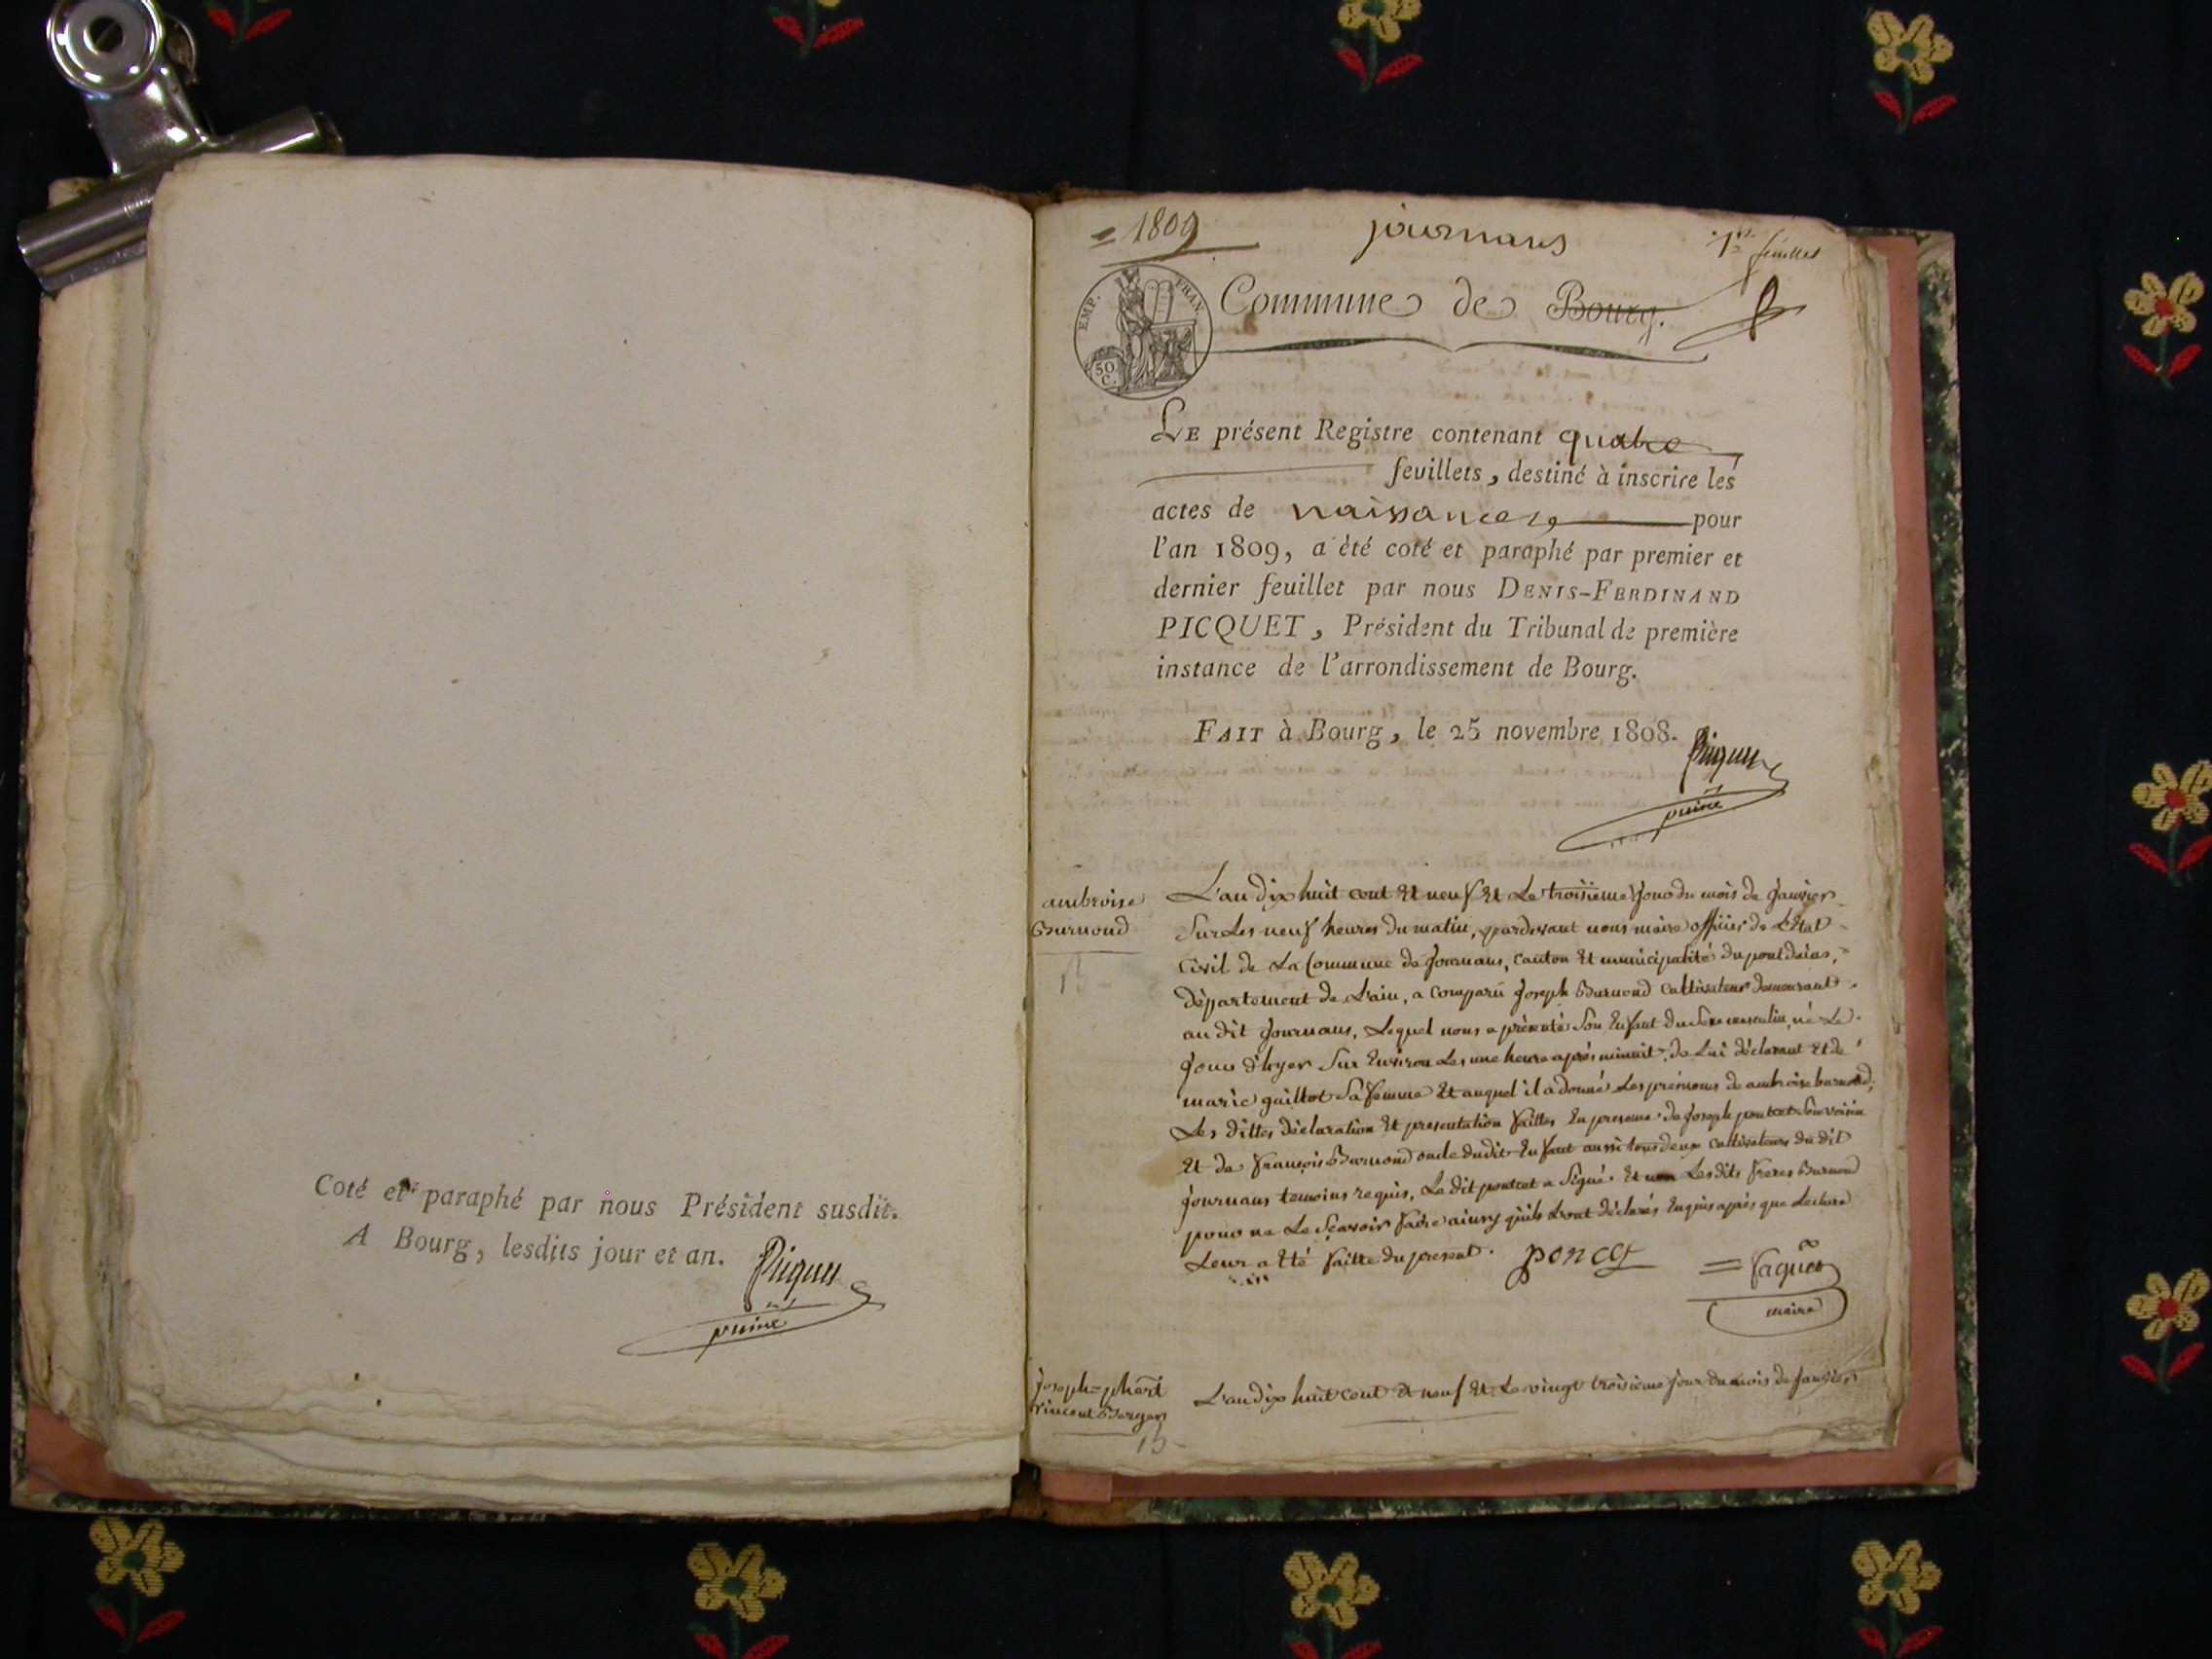 Coté et paraphé par nous Président susdit.
A Bourg, lesdits jour et an.
Picquet
= 1809
journans
1er feuillet
EMP. FRAN.
50 C.
Commune de Bourg.
LE présent Registre contenant quatre
feuillets, destiné à inscrire les
actes de naissances pour
l'an 1809, a été coté et paraphé par premier et
dernier feuillet par nous DENIS-FERDINAND
PICQUET, Président du Tribunal de première
instance de l'arrondissement de Bourg.
FAIT à Bourg, le 25 novembre 1808.
Picquet
ambroise
Burnond
L'an dix huit cent Et neuf Et Le troisieme Jour du mois de Janvier
Sur Les neuf heures du matin, pardevant nous maire officier de L'Etat
Civil de La Commune de Journans, canton Et municipalité du pont dains,
département de L'ain, a comparu Joseph Burnond cultivateur demeurant
au dit Journans, Lequel nous a présenté Son Enfant du Sexe masculin, né Le
Jour d'hyer Sur Environ Les une heure après minuit, de Lui déclarant Et de
marie guillot Sa femme Et auquel il a donné Les prénoms de ambroise burnond;
Les dittes déclaration Et presentation faittes En presence de Joseph poncet Son voisin
Et de François Burnond oncle dudit Enfant aussi tous deux cultivateurs du dit
Journans temoins requis, Le dit poncet a Signé Et non Les dits freres Burnond
pour ne Le Sçavoir faire ainsy quils L'ont déclarés Enquis après que Lecture
Leur a Eté faitte du present.
poncet
maire
Joseph = phert
Vincent
15
L'an dix huit cent Et neuf Et Le vingt troisieme Jour du mois de Janvier